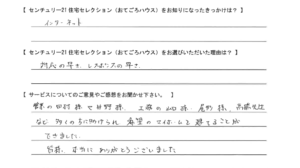 【 センチュリー21 住宅セレクション（おてごろハウス）をお知りになったきっかけは？ 】
インターネット
【 センチュリー21 住宅セレクション（おてごろハウス）をお選びいただいた理由は？ 】
対応の早さ、レスポンスの早さ
【 サービスについてのご意見やご感想をお聞かせ下さい。 】
営業の田村様や日野様、工務の山崎様、尾野様、高橋先生
など多くの方に助けられ、希望のマイホームを建てることが
できました。
皆様、本当にありがとうございました